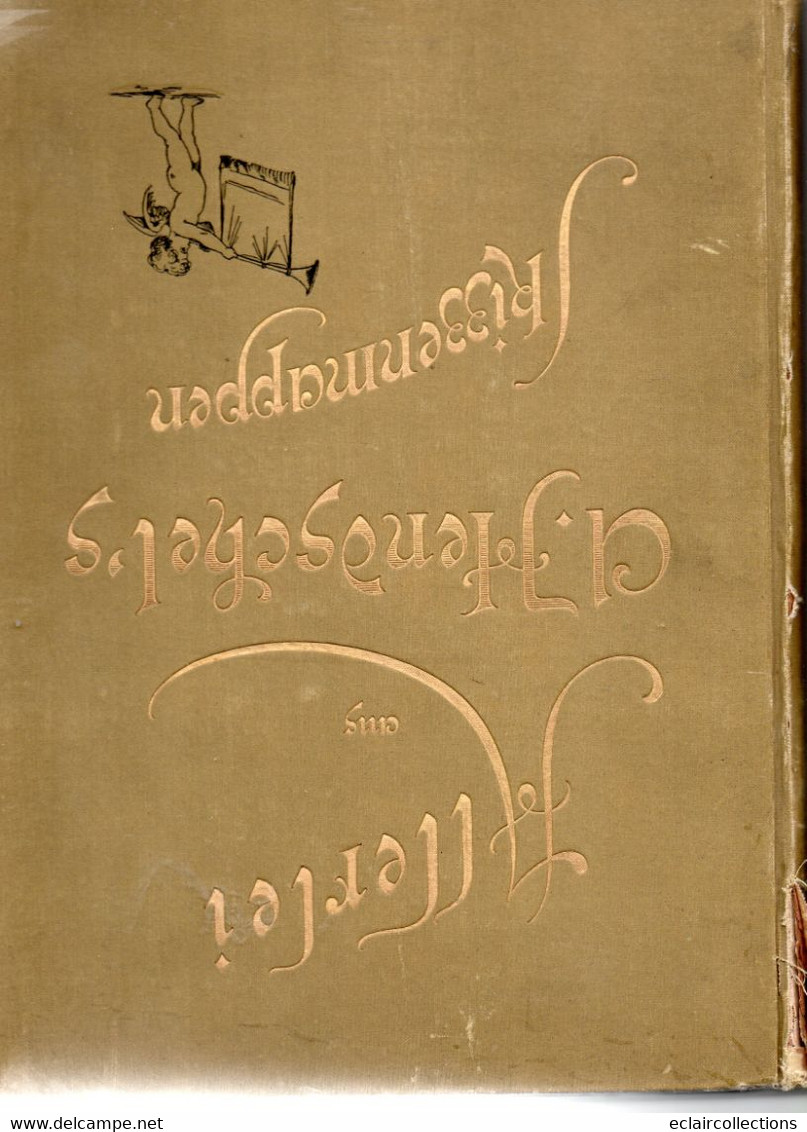 Allerlei
aus
A. Hendschel's
Skizzenmappen
delcampe.net
eclaircollections